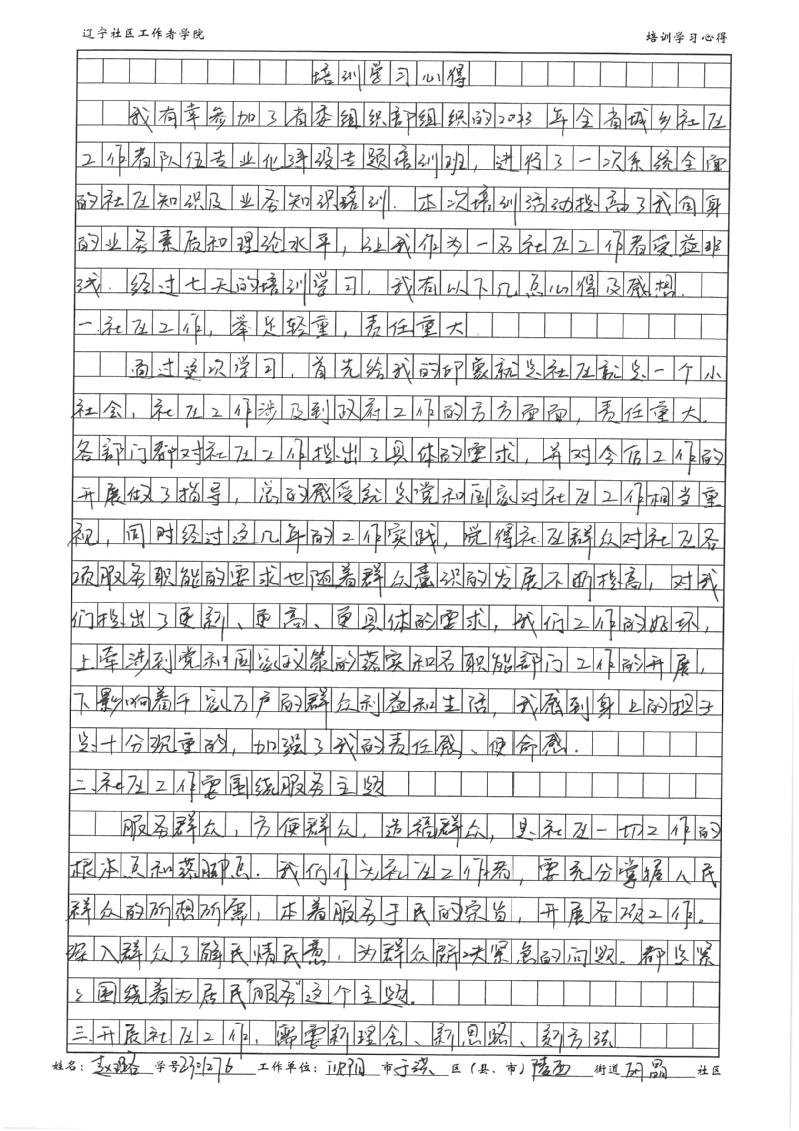 辽宁社区工作者学院 培训学习心得
培训学习心得
我有幸参加了省委组织部组织的2023年全省城乡社区
工作者队伍专业化建设专题培训班，进行了一次系统全面
的社区知识及业务知识培训．本次培训活动提高了我自身
的业务素质和理论水平，让我作为一名社区工作者受益班
浅．经过七天的培训学习，我有以下几点心得及感想．
一．社区工作，举足轻重，责任重大
通过这次学习，首先给我的印象就是社区就是一个小
社会，社区工作涉及到政府工作的方方面面，责任重大．
各部门都对社区工作提出了具体的要求，并对今后工作的
开展做了指导，总的感受就是党和国家对社区工作相当重
视，同时经过这几年的工作实践，觉得社区群众对社区各
项服务职能的要求也随着群众意识的发展不断提高，对我
们提出了更新、更高、更具体的要求，我们工作的好坏，
上牵涉到党和国家政策的落实和各职能部门工作的开展，
下影响着千家万户的群众利益和生活，我感到身上的担子
是十分沉重的，加强了我的责任感、使命感．
二．社区工作要围绕服务主题
服务群众，方便群众，造福群众，是社区一切工作的
根本点和落脚点．我们作为社区工作者，要充分掌握人民
群众的所想所需，本着服务于民的宗旨，开展各项工作。
深入群众了解民情民意，为群众解决紧急的问题。都是紧
紧围绕着为居民"服务"这个主题．
三．开展社区工作，需要新理念、新思路、新方法
姓名：赵璐 学号2301276 工作单位：沈阳 市 于洪 区（县、市）陵西 街道 晶 社区